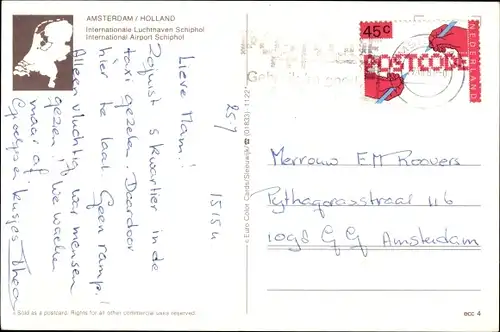 AMSTERDAM / HOLLAND
Internationale Luchthaven Schiphol
International Airport Schiphol
25.7 15.15 u
Lieve Mam!
kwartier in de
taxi gezeten. Daardoor
hier te laat. Geen ramp!
Alleen vluchtig wat mensen
gezien. We wachten
maar af.
kusjes Thea
© Euro Color Cards/Sleeuwijk ☎ (01833)-11:22*
45c
POSTCODE
NEDERLAND
Mevrouw EM Roovers
Pythagorasstraat 116
1098 GG Amsterdam
Sold as a postcard. Rights for all other commercial uses reserved.
ecc 4